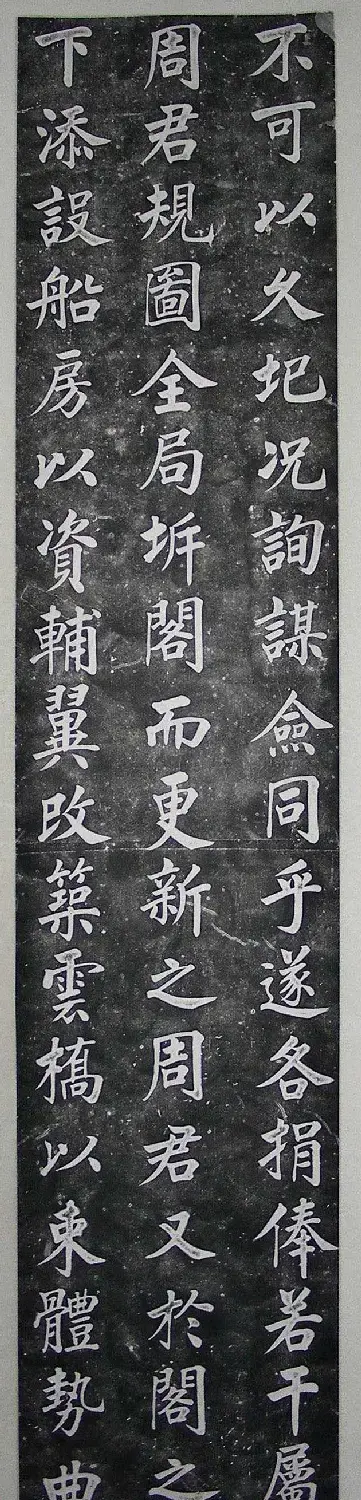 不可以久圮况詢謀僉同乎遂各捐俸若干屬
周君規圖全局坼閣而更新之周君又於閣之
下添設船房以資輔翼改築雲橋以束體勢曲